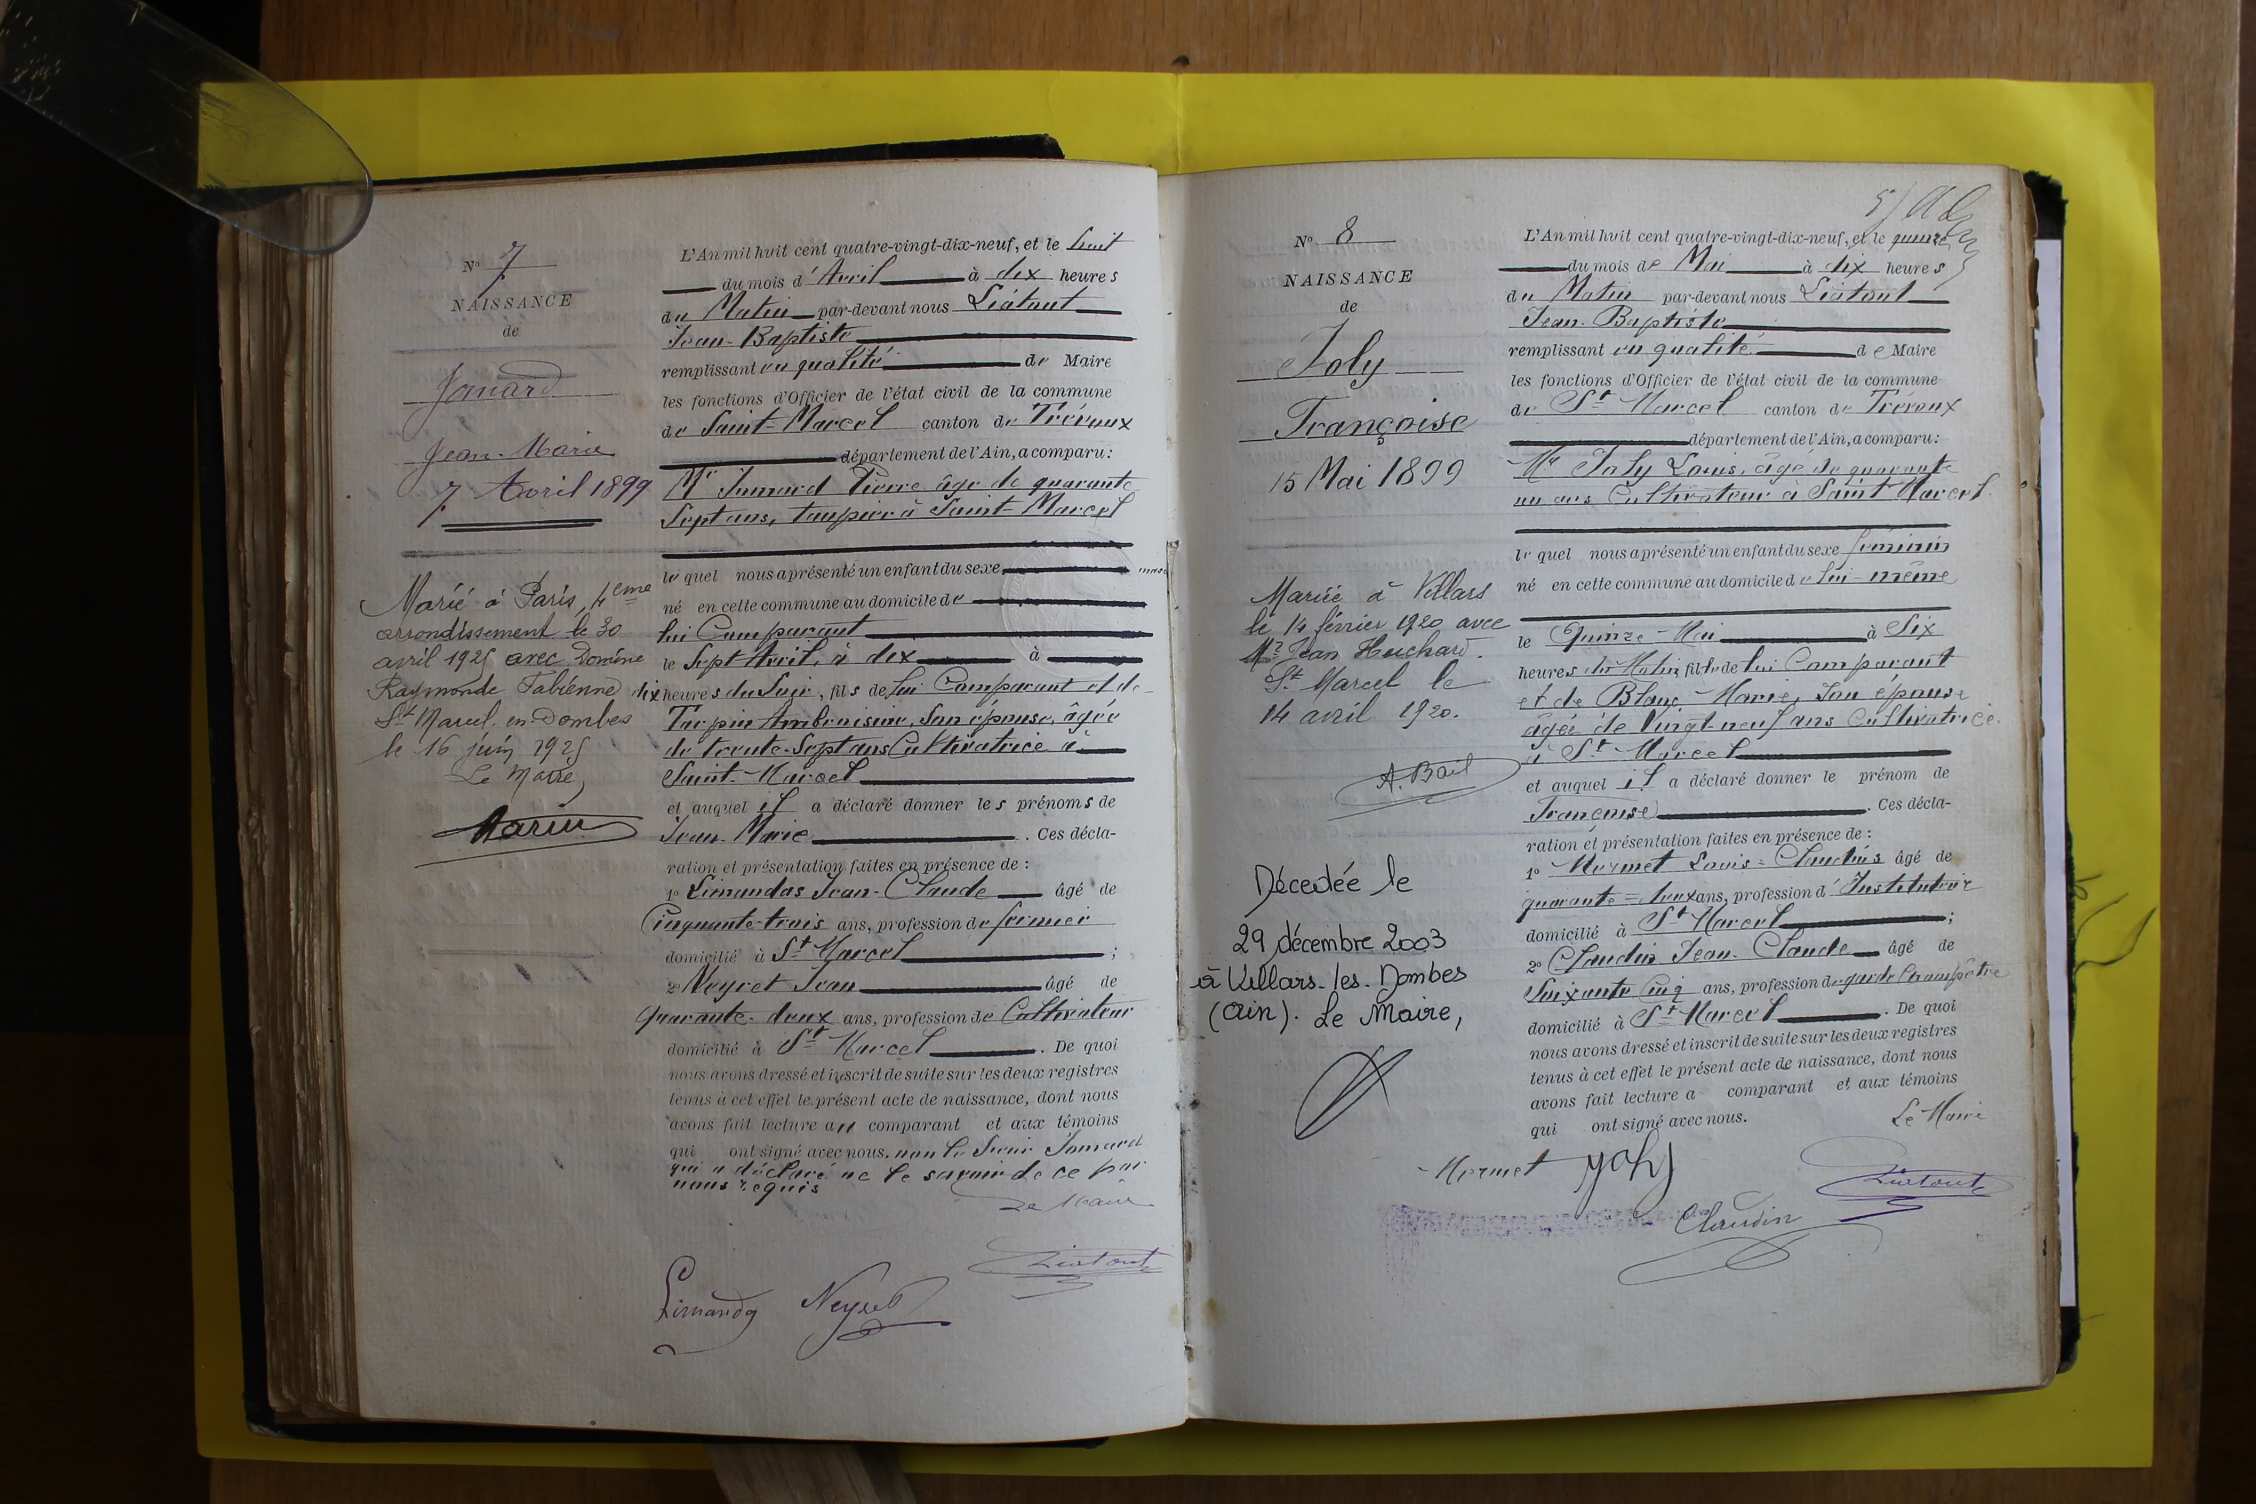 N° 7
NAISSANCE
de
Jomard
Jean-Marie
7 Avril 1899
Marié à Paris, 4eme
arrondissement le 30
avril 1925 avec Domène
Raymonde Fabienne
St Marcel en-Dombes
le 16 juin 1925
Le Maire,
L'An mil huit cent quatre-vingt-dix-neuf, et le huit
du mois d'Avril à dix heures
du Matin par-devant nous Liatout
Jean-Baptiste
remplissant en qualité de Maire
les fonctions d'Officier de l'état civil de la commune
de Saint-Marcel canton de Trévoux
département de l'Ain, a comparu:
Mr Jomard Pierre âgé de quarante
Sept ans, taupier à Saint-Marcel
lequel nous a présenté un enfant du sexe
né en cette commune au domicile de
lui Comparant
le Sept Avril, à dix à
dix heures du Soir, fils de lui Comparant et de
Turpin Ambroisine, Son épouse, âgée
de trente-Sept ans Cultivatrice à
Saint-Marcel
et auquel il a déclaré donner les prénoms de
Jean-Marie . Ces décla-
ration et présentation faites en présence de :
1° Limandas Jean-Claude âgé de
Cinquante-trois ans, profession de fermier
domicilié à St Marcel ;
2° Neyret Jean âgé de
Quarante-deux ans, profession de Cultivateur
domicilié à St Marcel . De quoi
nous avons dressé et inscrit de suite sur les deux registres
tenus à cet effet le présent acte de naissance, dont nous
avons fait lecture au comparant et aux témoins
qui ont signé avec nous. non le Sieur Jomard
qui a déclaré ne le savoir de ce par
nous requis
Le Maire
Liatout
Limandas Neyret
N° 8
NAISSANCE
de
Joly
Françoise
15 Mai 1899
Mariée à Villars
le 14 février 1920 avec
Mr Jean Huchard.
St Marcel le
14 avril 1920.
A. Bail
Décédée le
29 décembre 2003
à Villars-les-Dombes
(Ain). Le Maire,
L'An mil huit cent quatre-vingt-dix-neuf, et le quinze
du mois de Mai à dix heures
du Matin par-devant nous Liatout
Jean-Baptiste
remplissant en qualité de Maire
les fonctions d'Officier de l'état civil de la commune
de St Marcel canton de Trévoux
département de l'Ain, a comparu:
Mr Joly Louis, âgé de quarante
un ans Cultivateur à Saint Marcel.
lequel nous a présenté un enfant du sexe féminin
né en cette commune au domicile de lui-même
le Quinze-Mai à Six
heures du Matin fille de lui Comparant
et de Blanc-Marie, Son épouse
âgée de Vingt-neuf ans Cultivatrice
à St-Marcel
et auquel il a déclaré donner le prénom de
Françoise . Ces décla-
ration et présentation faites en présence de :
1° Mermet Louis-Claudius âgé de
quarante-deux ans, profession d'Instituteur
domicilié à St Marcel ;
2° Claudin Jean-Claude âgé de
Soixante Cinq ans, profession de garde Champêtre
domicilié à St Marcel . De quoi
nous avons dressé et inscrit de suite sur les deux registres
tenus à cet effet le présent acte de naissance, dont nous
avons fait lecture a comparant et aux témoins
qui ont signé avec nous.
Le Maire
Mermet Joly
Liatout
Claudin